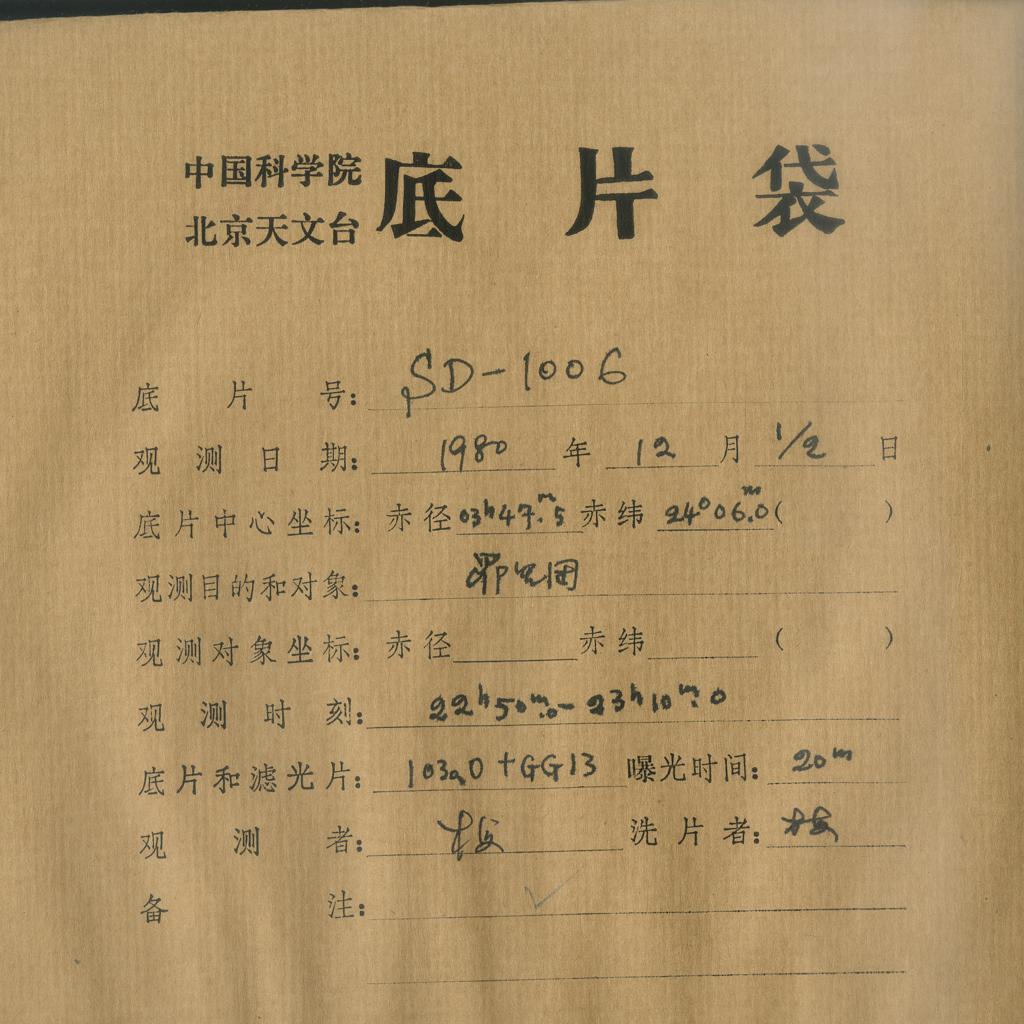 中国科学院
北京天文台
底片袋
底片号: SD-1006
观测日期: 1980 年 12 月 1/2 日
底片中心坐标: 赤径 03h47m.5 赤纬 24°06m.0 ( )
观测目的和对象: 昴星团
观测对象坐标: 赤径 赤纬 ( )
观测时刻: 22h50m.0-23h10m.0
底片和滤光片: 103aO+GG13 曝光时间: 20m
观测者: 洗片者:
备注: ✓